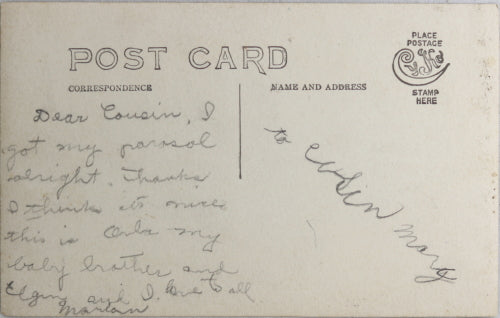 POST CARD
CORRESPONDENCE
NAME AND ADDRESS
PLACE
POSTAGE
CYKO
STAMP
HERE
Dear Cousin, I
got my parasol
alright. Thanks
I think its nice
this is my
baby brother and
Elgin and I. love to all
Marian
to cusin Mary